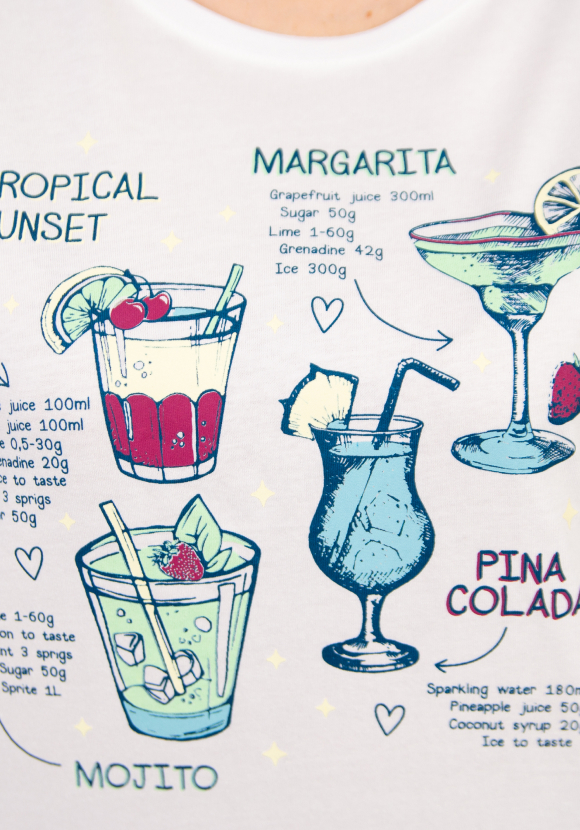 ROPICAL
UNSET
MARGARITA
Grapefruit juice 300ml
Sugar 50g
Lime 1-60g
Grenadine 42g
Ice 300g
juice 100ml
juice 100ml
e 0,5-30g
enadine 20g
ce to taste
3 sprigs
r 50g
PINA
COLADA
e 1-60g
on to taste
nt 3 sprigs
Sugar 50g
Sprite 1L
Sparkling water 180m
Pineapple juice 50
Coconut syrup 20
Ice to taste
MOJITO